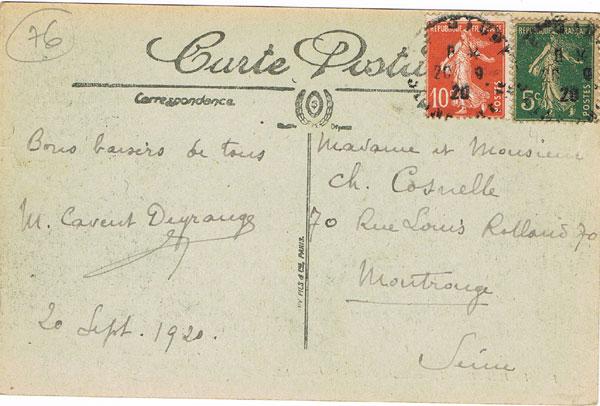 76
Carte Postale
Correspondance
RÉPUBLIQUE FRANÇAISE
10c
POSTES
RÉPUBLIQUE FRANÇAISE
5c
POSTES
20
20
Bons baisers de tous
M.
20 Sept. 1920.
FILS & Cie, PARIS.
Madame et Monsieur
Ch. Cosnelle
70 Rue Louis Rolland 70
Montrouge
Seine